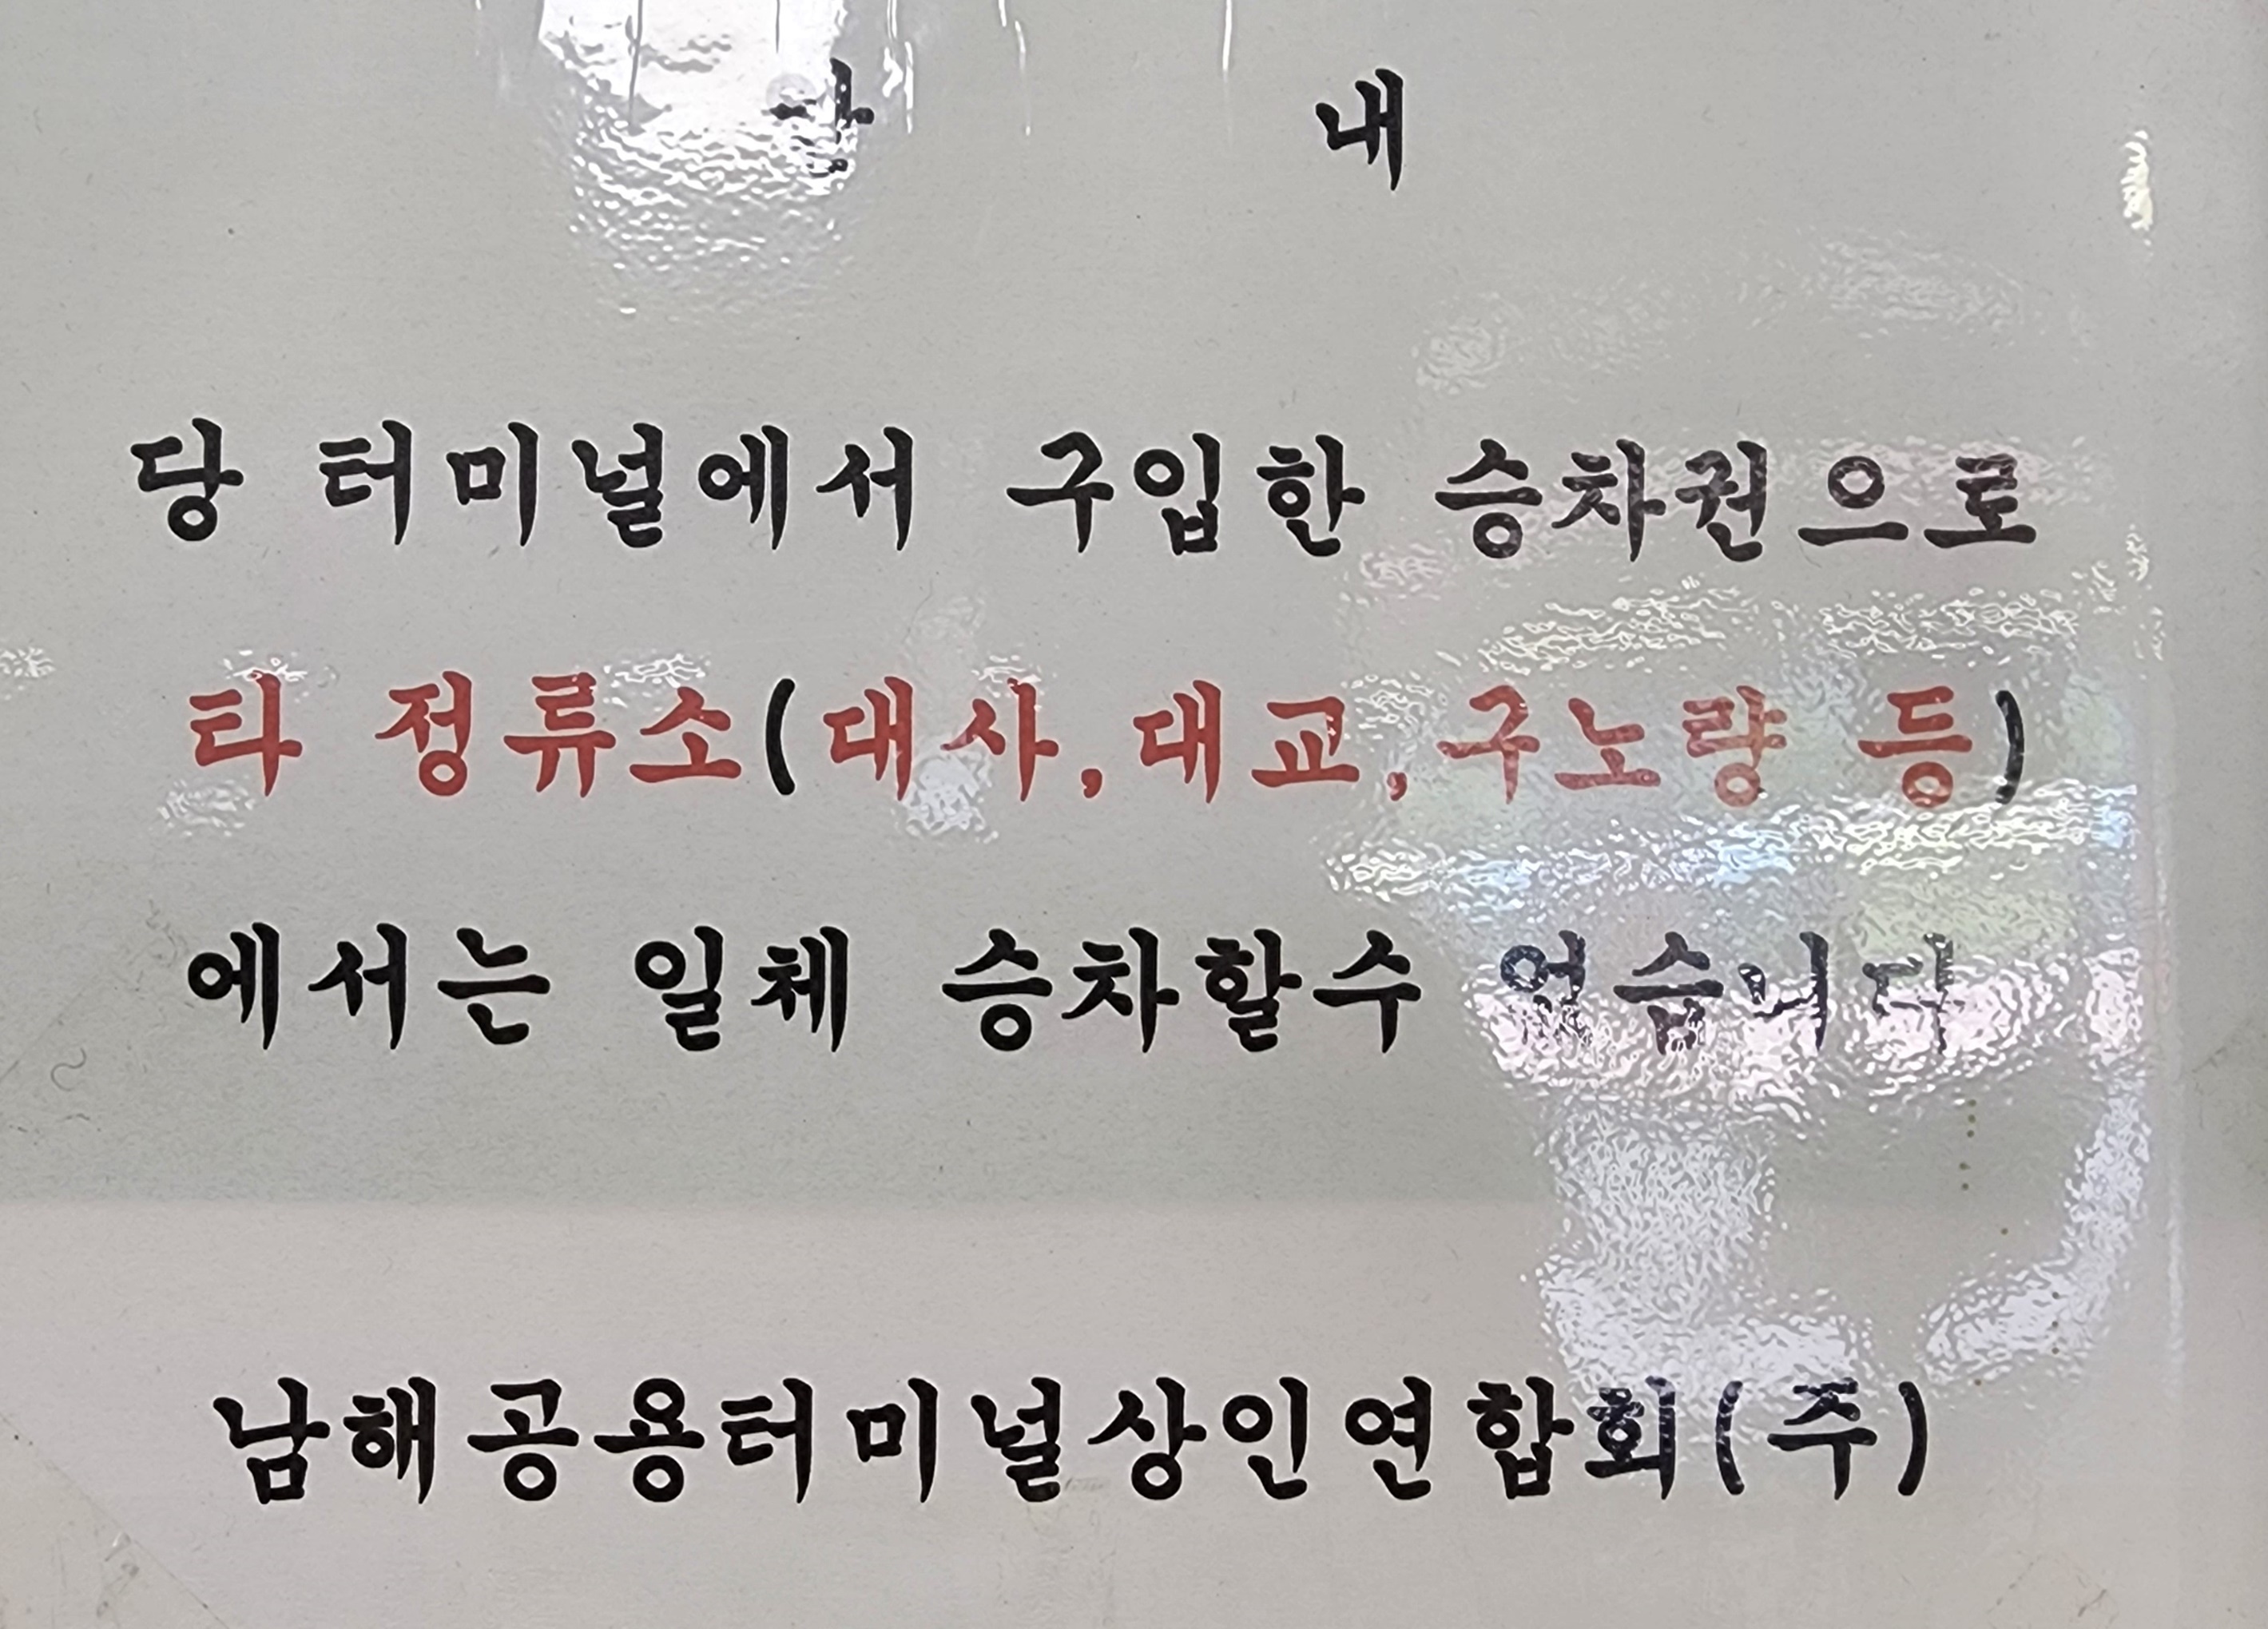 안 내
당 터미널에서 구입한 승차권으로
타 정류소(대사,대교,구노량 등)
에서는 일체 승차할수 없습니다
남해공용터미널상인연합회(주)